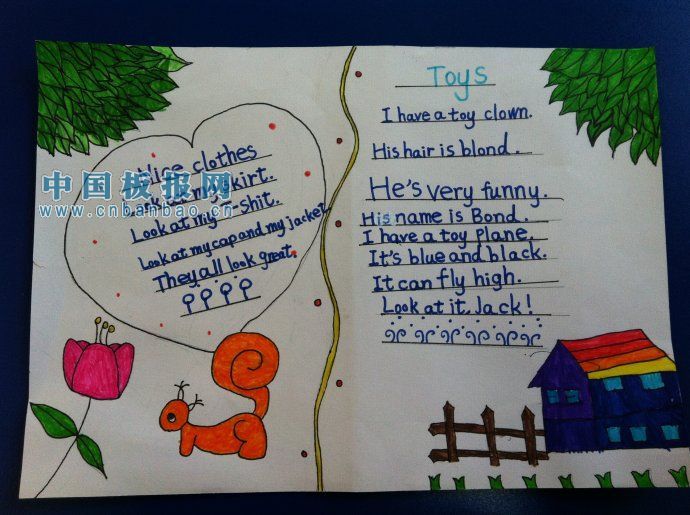 Nice clothes
Look at my skirt.
Look at my T-shit.
Look at my cap and my jacket.
They all look great.
中国板报网
www.cnbanbao.cn
Toys
I have a toy clown.
His hair is blond.
He's very funny.
His name is Bond.
I have a toy Plane.
It's blue and black.
It can fly high.
Look at it, Jack!